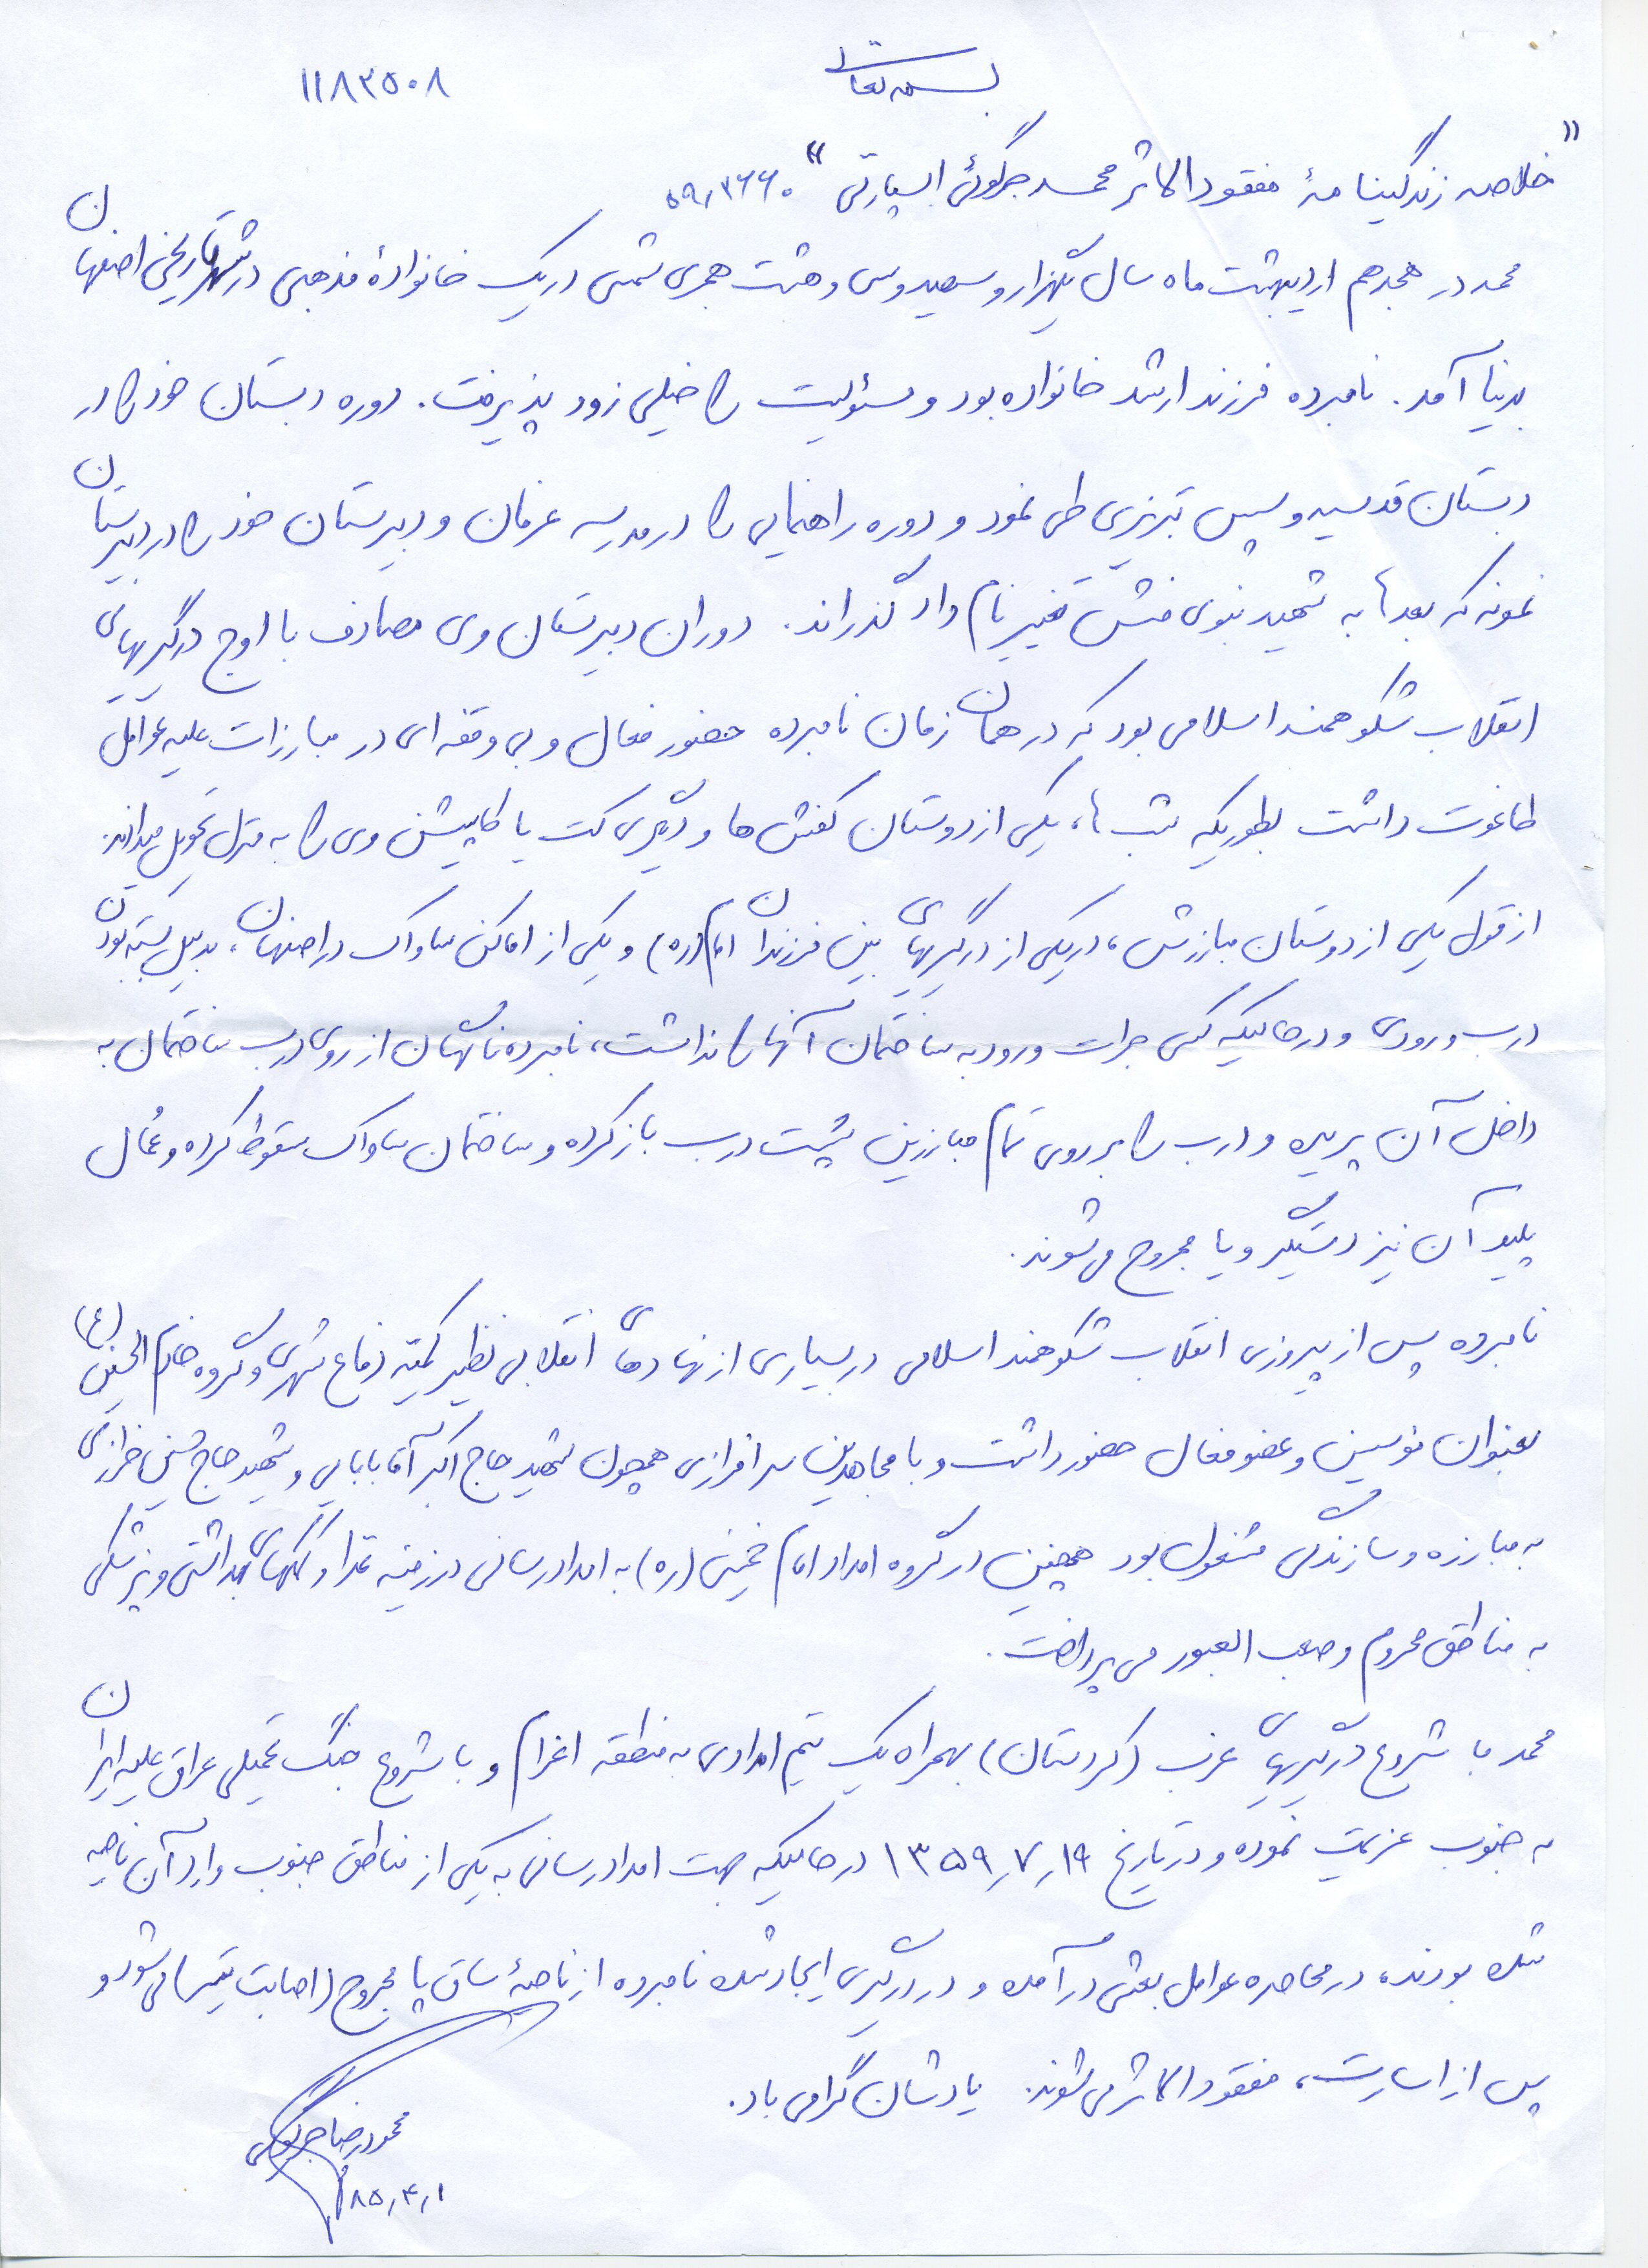 بسمه تعالی
۱۱۸۳۵۰۸
"خلاصه زندگینامهٔ مفقودالاثر محمد جرگوئی اسپارتی" ۵۹٫۳۶۶۰
محمد در هجدهم اردیبهشت ماه سال یکهزار و سیصد و سی و هشت هجری شمسی در یک خانوادهٔ مذهبی در شهر تاریخی اصفهان
بدنیا آمد. نامبرده فرزند ارشد خانواده بود و مسئولیت را خیلی زود پذیرفت. دوره دبستان خود را در
دبستان قدسیه و سپس تبریزی طی نمود و دوره راهنمایی را در مدرسه عرفان و دبیرستان خود را در دبیرستان
نمونه که بعدها به شهید نبوی منش تغییر نام داد گذراند. دوران دبیرستان وی مصادف با اوج درگیریهای
انقلاب شکوهمند اسلامی بود که در همان زمان نامبرده حضور فعال و بی وقفه ای در مبارزات علیه عوامل
طاغوت داشت بطوریکه شب ها، یکی از دوستان کفش ها و دیگری کت یا کاپیشن وی را به منزل تحویل میدادند.
از قول یکی از دوستان مبارزش، در یکی از درگیریهای بین فرزندان امام (ره) و یکی از اماکن ساواک در اصفهان، بدلیل بسته بودن
درب ورودی و در حالیکه کسی جرات ورود به ساختمان آنها را نداشت، نامبرده ناگهان از روی درب ساختمان به
داخل آن پریده و درب را بر روی تمام مبارزین پشت درب باز کرده و ساختمان ساواک سقوط کرده و عُمال
پلید آن نیز دستگیر و یا مجروح می شوند.
نامبرده پس از پیروزی انقلاب شکوهمند اسلامی در بسیاری از نهادهای انقلابی نظیر کمیته دفاع شهری و گروه خادم الحسین (ع)
بعنوان موسس و عضو فعال حضور داشت و با مجاهدین سرافرازی همچون شهید حاج اکبر آقابابایی و شهید حاج حسین خرازی
به مبارزه و سازندگی مشغول بود همچنین در گروه امداد امام خمینی (ره) به امدادرسانی در زمینه غذا و کمکهای بهداشتی و پزشکی
به مناطق محروم و صعب العبور می پرداخت.
محمد با شروع درگیریهای غرب (کردستان) بهمراه یک تیم امدادی به منطقه اعزام و با شروع جنگ تحمیلی عراق علیه ایران
به جنوب عزیمت نموده و در تاریخ ۱۳۵۹٫۷٫۱۹ در حالیکه جهت امدادرسانی به یکی از مناطق جنوب وارد آن ناحیه
شده بودند، در محاصره عوامل بعثی درآمده و در درگیری ایجاد شده نامبرده از ناحیهٔ ساق پا مجروح (اصابت تیر) می شود و
پس از اسارت، مفقودالاثر می شوند. یادشان گرامی باد.
محمودرضا جرگوئی
۸۵٫۴٫۱